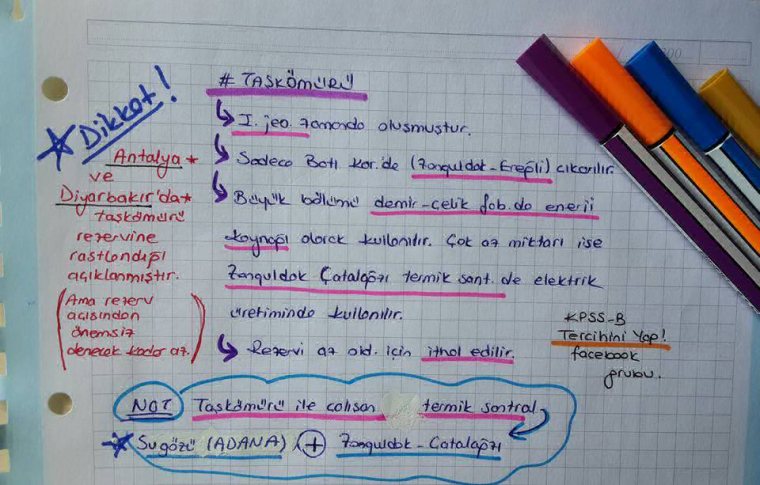 # TAŞKÖMÜRÜ
I. jeo. zamanda oluşmuştur.
Sadece Batı Kar.de (Zonguldak-Ereğli) çıkarılır.
Büyük bölümü demir-çelik fab.da enerji
kaynağı olarak kullanılır. Çok az miktarı ise
Zonguldak Çatalağzı termik sant. de elektrik
üretiminde kullanılır.
Rezervi az old. için ithal edilir.
Dikkat!
Antalya
ve
Diyarbakır'da
taşkömürü
rezervine
rastlandığı
açıklanmıştır.
(Ama rezerv
açısından
önemsiz
denecek kadar az.)
KPSS-B
Tercihini Yap!
facebook
grubu.
NOT Taşkömürü ile çalışan termik santral
Sugözü (ADANA) + Zonguldak-Çatalağzı